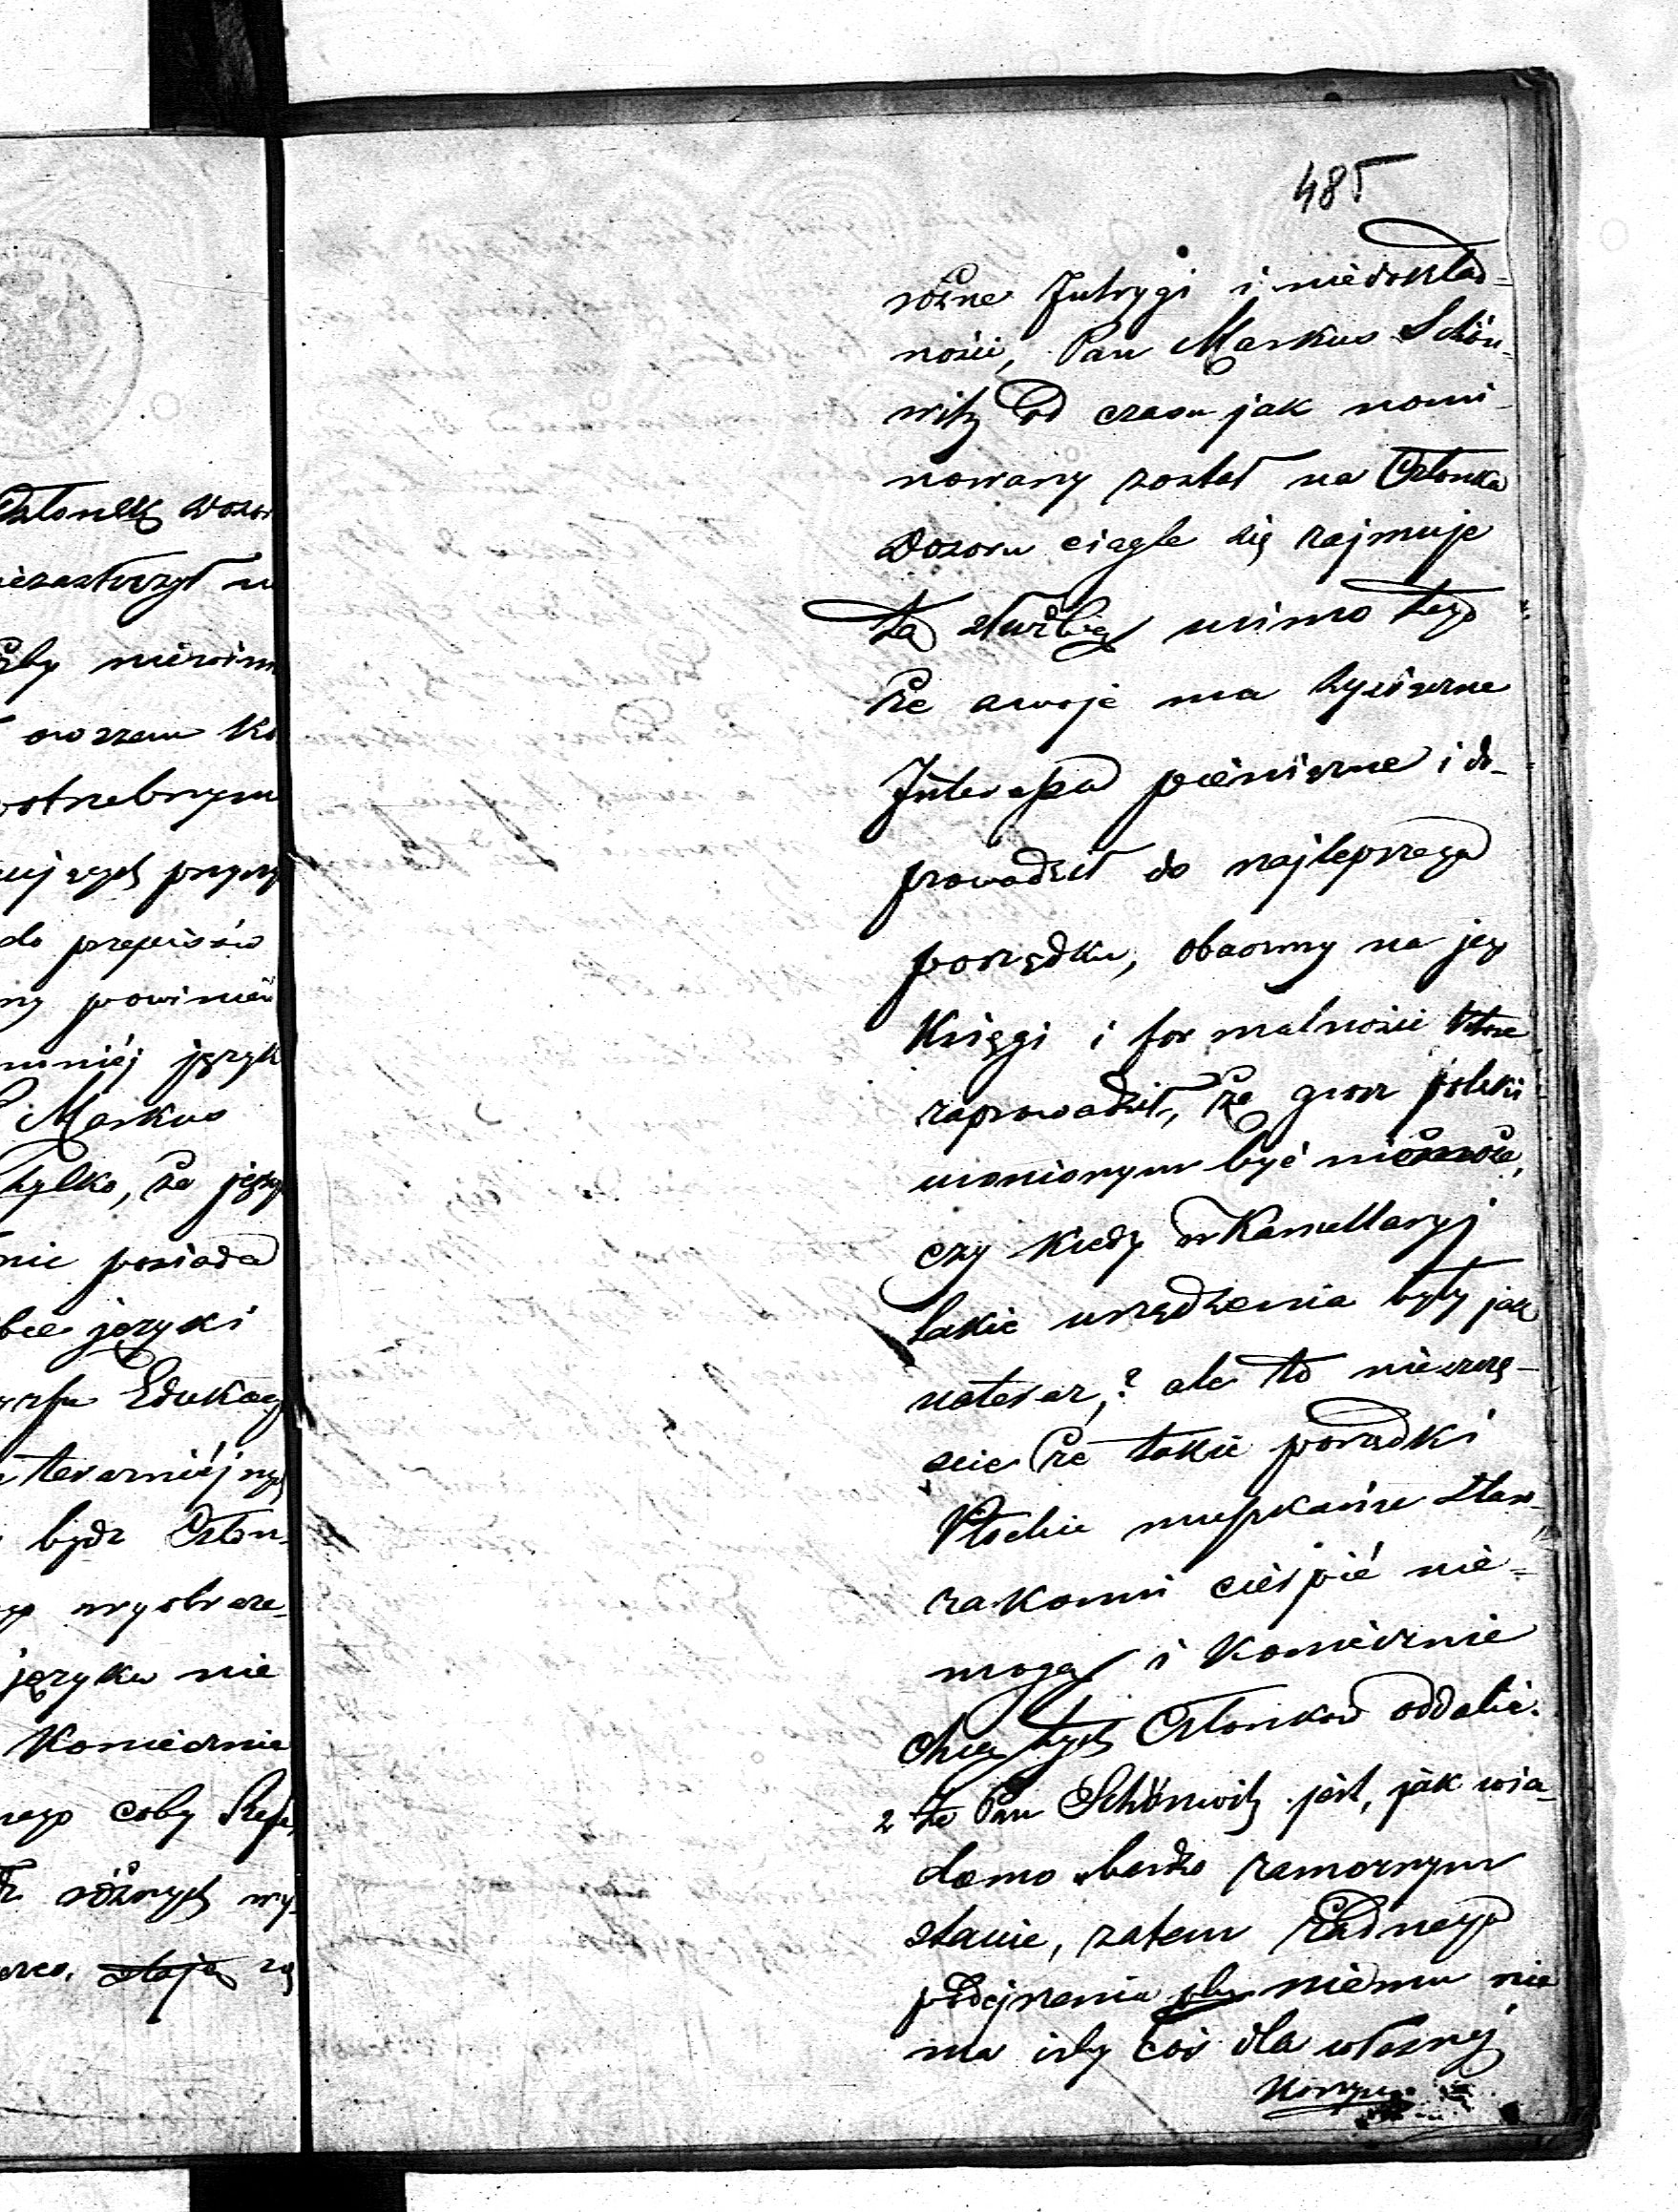 485
różne Intrygi i niedokład=
ności, Pan Markus Schön-
witz od czasu jak nomi-
nowany został na Członka
Dozoru ciągle się zajmuje
tą służbą mimo tego
że swoje ma tysiączne
Interessa pieniężne i do-
prowadził do najlepszego
porządku, obaczmy na jego
Księgi i formalności które
zaprowadził, że grosz polski
być niemoże,
czy kiedy w Kancellaryj
takie urządzenia były jak
na teraz,? ale to nieszczę-
ście że takie porządki
Płockie mieszkańce Star-
zakonni cierpić nie=
mogą i koniecznie
chcą tych Członków oddalić.
2 że Pan Schönwitz jest, jak wia-
domo bardzo zamożnym
stanie, zatem żadnego
podejrzenia niemu nie
ma iżby coś dla własnej
Członek Dozor
niezastużył
żby niewinn
owszem
potrzebnym
do przepisów
ny powinien
mniéj język
Markus
tylko, że języ
nie posiada
bce języki
Edukacy
bydz Człon-
wyobraże-
języku nie
Koniecznie
coby
różnych wy-
staje